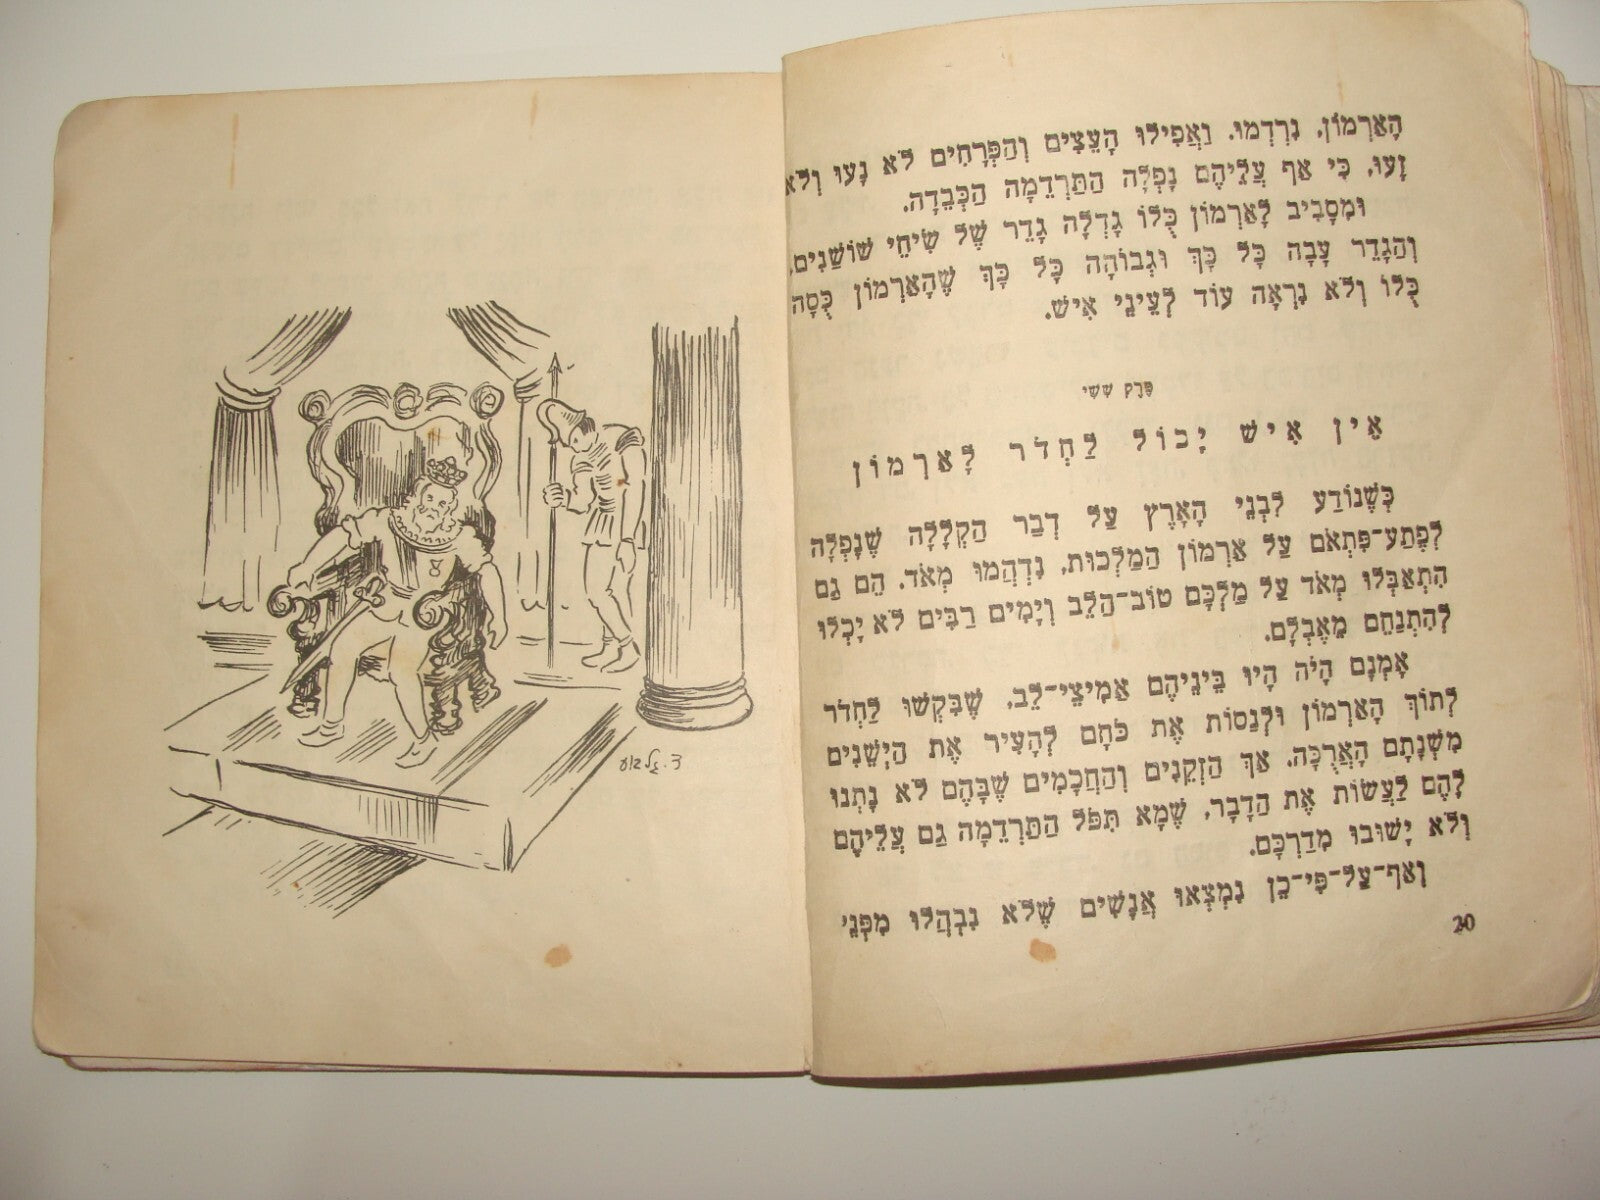 הָאַרְמוֹן, נִרְדְּמוּ. וַאֲפִילוּ הָעֵצִים וְהַפְּרָחִים לֹא נָעוּ וְלֹא
זָעוּ, כִּי אַף עֲלֵיהֶם נָפְלָה הַתַּרְדֵּמָה הַכְּבֵדָה.
וּמִסָּבִיב לָאַרְמוֹן כֻּלּוֹ גָּדְלָה גָדֵר שֶׁל שִׂיחֵי שׁוֹשַׁנִּים,
וְהַגָּדֵר עָבָה כָּל כָּךְ וּגְבוֹהָה כָּל כָּךְ שֶׁהָאַרְמוֹן כֻּסָּה
כֻּלּוֹ וְלֹא נִרְאָה עוֹד לְעֵינֵי אִישׁ.
פֶּרֶק שִׁשִּׁי
אֵין אִישׁ יָכוֹל לַחְדֹּר לָאַרְמוֹן
כְּשֶׁנּוֹדַע לִבְנֵי הָאָרֶץ עַל דְּבַר הַקְּלָלָה שֶׁנָּפְלָה
לְפֶתַע־פִּתְאֹם עַל אַרְמוֹן הַמַּלְכוּת, נִדְהֲמוּ מְאֹד. הֵם גַּם
הִתְאַבְּלוּ מְאֹד עַל מַלְכָּם טוֹב־הַלֵּב וְיָמִים רַבִּים לֹא יָכְלוּ
לְהִתְנַחֵם מֵאֶבְלָם.
אָמְנָם הָיֹה הָיוּ בֵּינֵיהֶם אַמִּיצֵי־לֵב, שֶׁבִּקְּשׁוּ לַחְדֹּר
לְתוֹךְ הָאַרְמוֹן וּלְנַסּוֹת אֶת כֹּחָם לְהָעִיר אֶת הַיְשֵׁנִים
מִשְּׁנָתָם הָאֲרֻכָּה. אַךְ הַזְּקֵנִים וְהַחֲכָמִים שֶׁבָּהֶם לֹא נָתְנוּ
לָהֶם לַעֲשׂוֹת אֶת הַדָּבָר, שֶׁמָּא תִּפֹּל הַתַּרְדֵּמָה גַּם עֲלֵיהֶם
וְלֹא יָשׁוּבוּ מִדַּרְכָּם.
וְאַף־עַל־פִּי־כֵן נִמְצְאוּ אֲנָשִׁים שֶׁלֹּא נִבְהֲלוּ מִפְּנֵי
20
ד. גלבוע